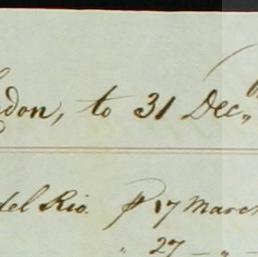 don, to 31 Dec,,
del Rio. ⅌ 17 March
" 27 – " –